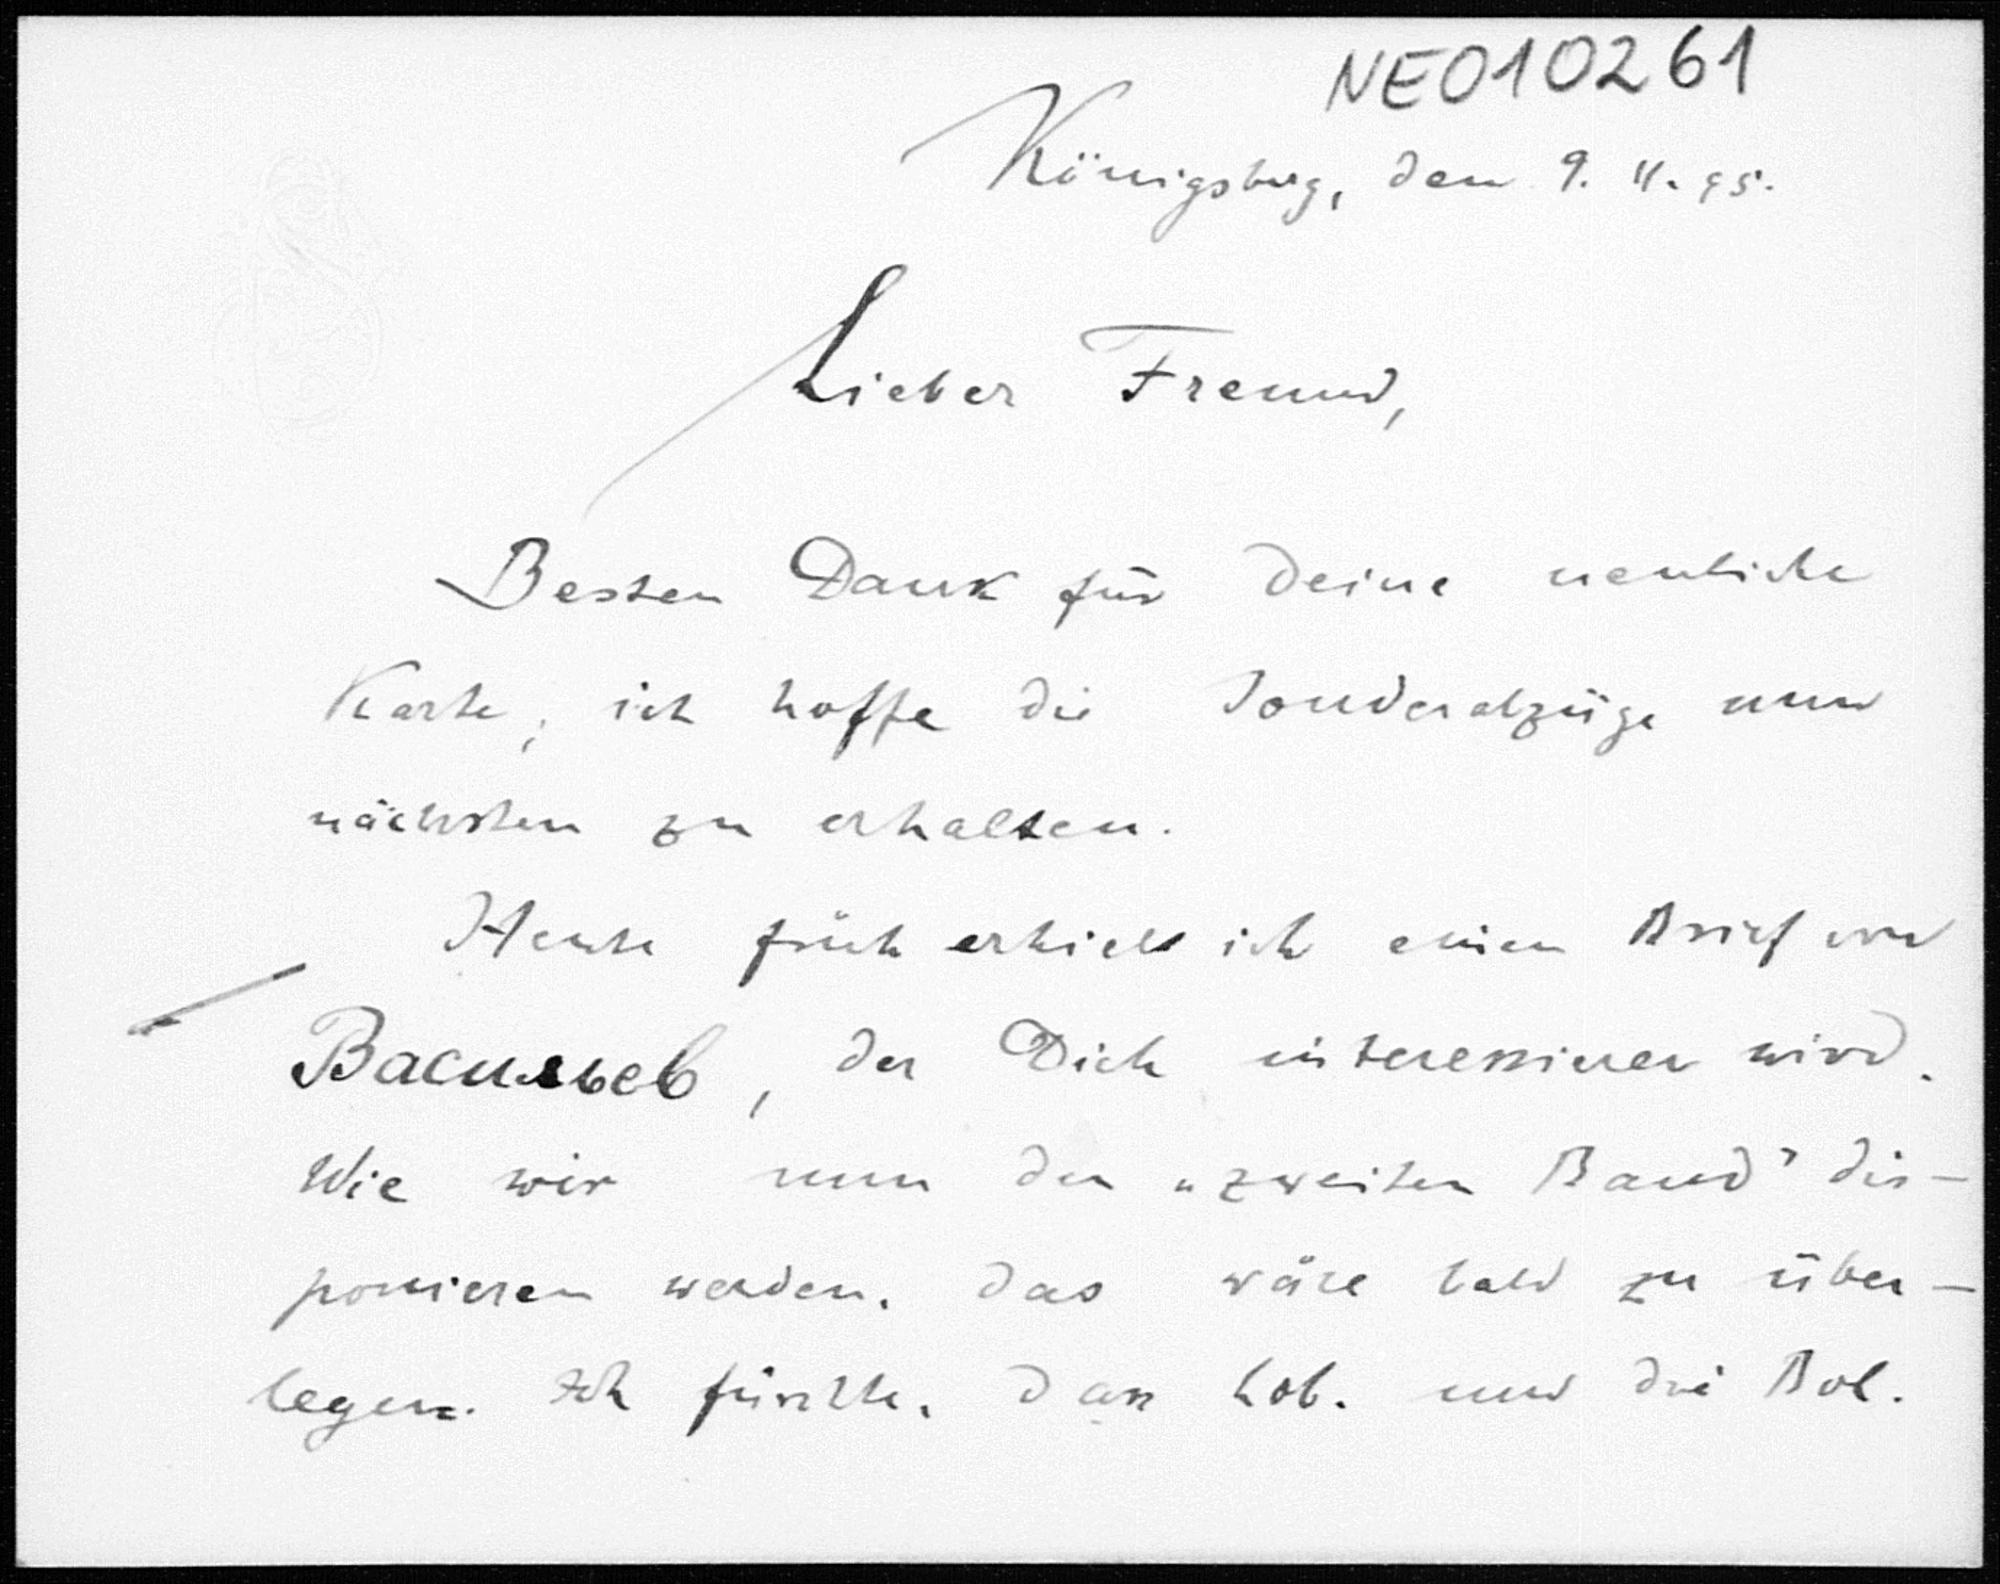 NE010261
Königsberg, den 9. 11. 95.
Lieber Freund,
Besten Dank für Deine neuliche
Karte; ich hoffe die Sonderabzüge nun
nächsten zu erhalten.
Heute früh erhielt ich einen Brief von
Васильев, der Dich interessieren wird.
Wie wir nun den „zweiten Band" dis-
ponieren werden, das wäre bald zu über-
legen. Ich fürchte, dass Lob. und die Bol.